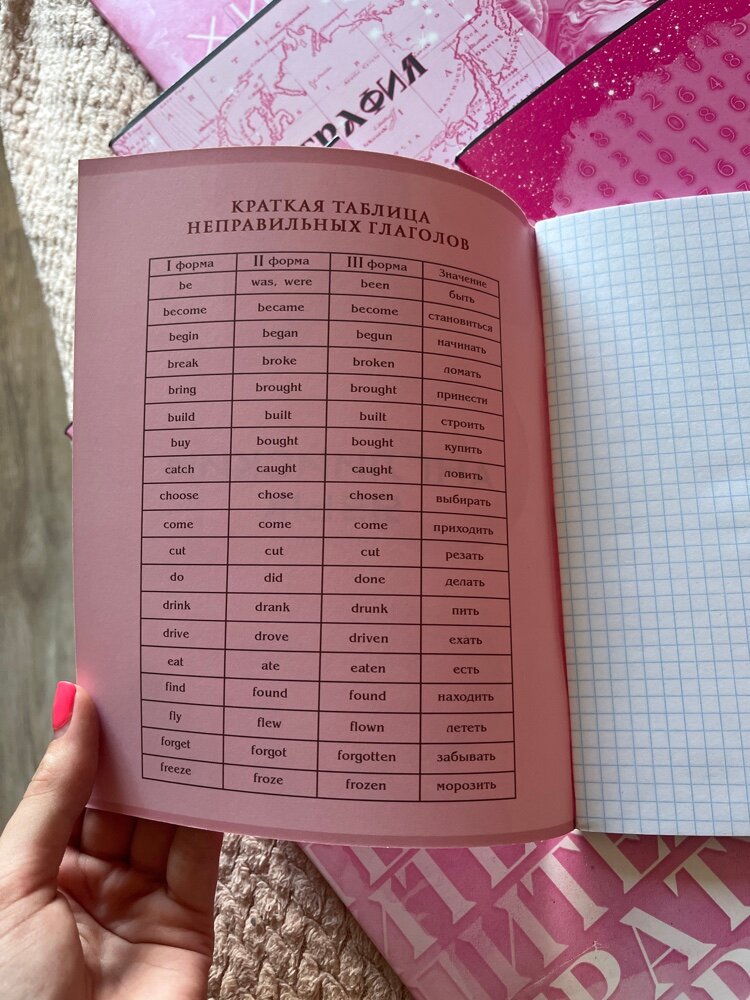 ГРАФИЯ
КРАТКАЯ ТАБЛИЦА
НЕПРАВИЛЬНЫХ ГЛАГОЛОВ
I форма II форма III форма Значение
be was, were been быть
become became become становиться
begin began begun начинать
break broke broken ломать
bring brought brought принести
build built built строить
buy bought bought купить
catch caught caught ловить
choose chose chosen выбирать
come come come приходить
cut cut cut резать
do did done делать
drink drank drunk пить
drive drove driven ехать
eat ate eaten есть
find found found находить
fly flew flown лететь
forget forgot forgotten забывать
freeze froze frozen морозить